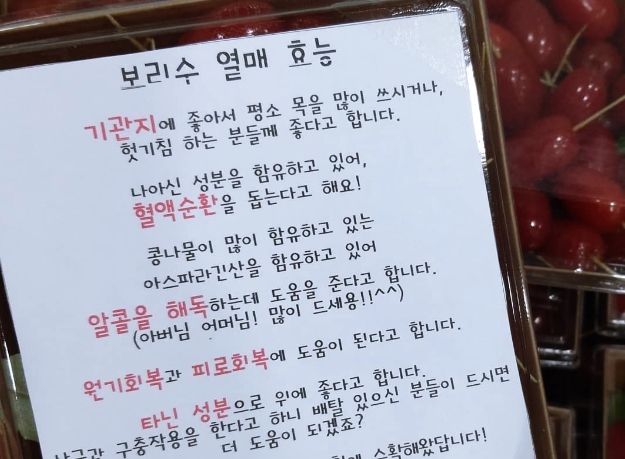 보리수 열매 효능
기관지에 좋아서 평소 목을 많이 쓰시거나,
헛기침 하는 분들께 좋다고 합니다.
나아신 성분을 함유하고 있어,
혈액순환을 돕는다고 해요!
콩나물이 많이 함유하고 있는
아스파라긴산을 함유하고 있어
알콜을 해독하는데 도움을 준다고 합니다.
(아버님 어머님! 많이 드세용!!^^)
원기회복과 피로회복에 도움이 된다고 합니다.
타닌 성분으로 위에 좋다고 합니다.
구충작용을 한다고 하니 배탈 있으신 분들이 드시면
더 도움이 되겠죠?
수확해왔답니다!